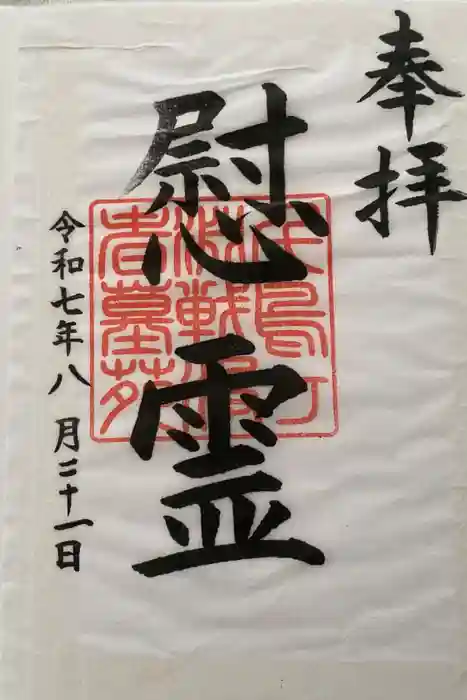 奉拝
慰霊
千鳥ケ
淵戦没
者墓苑
令和七年八月二十一日